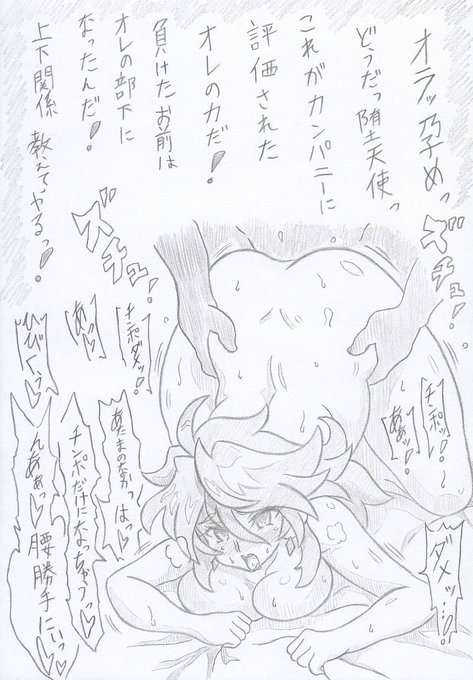 オラッ孕めっ
どうだっ堕天使っ
これがカンパニーに
評価された
オレの力だ！
負けたお前は
オレの部下に
なったんだ！
上下関係 教えてやるっ！
ズチュ！
ズチュ！
チンポッ！
ああッ！
ダメッ…！
チンポダメッ！
あっ♡
ひびくっ♡
あたまのなかっ はっ♡
チンポだけになっちゃうっ♡
んああっ♡腰勝手にいっ♡